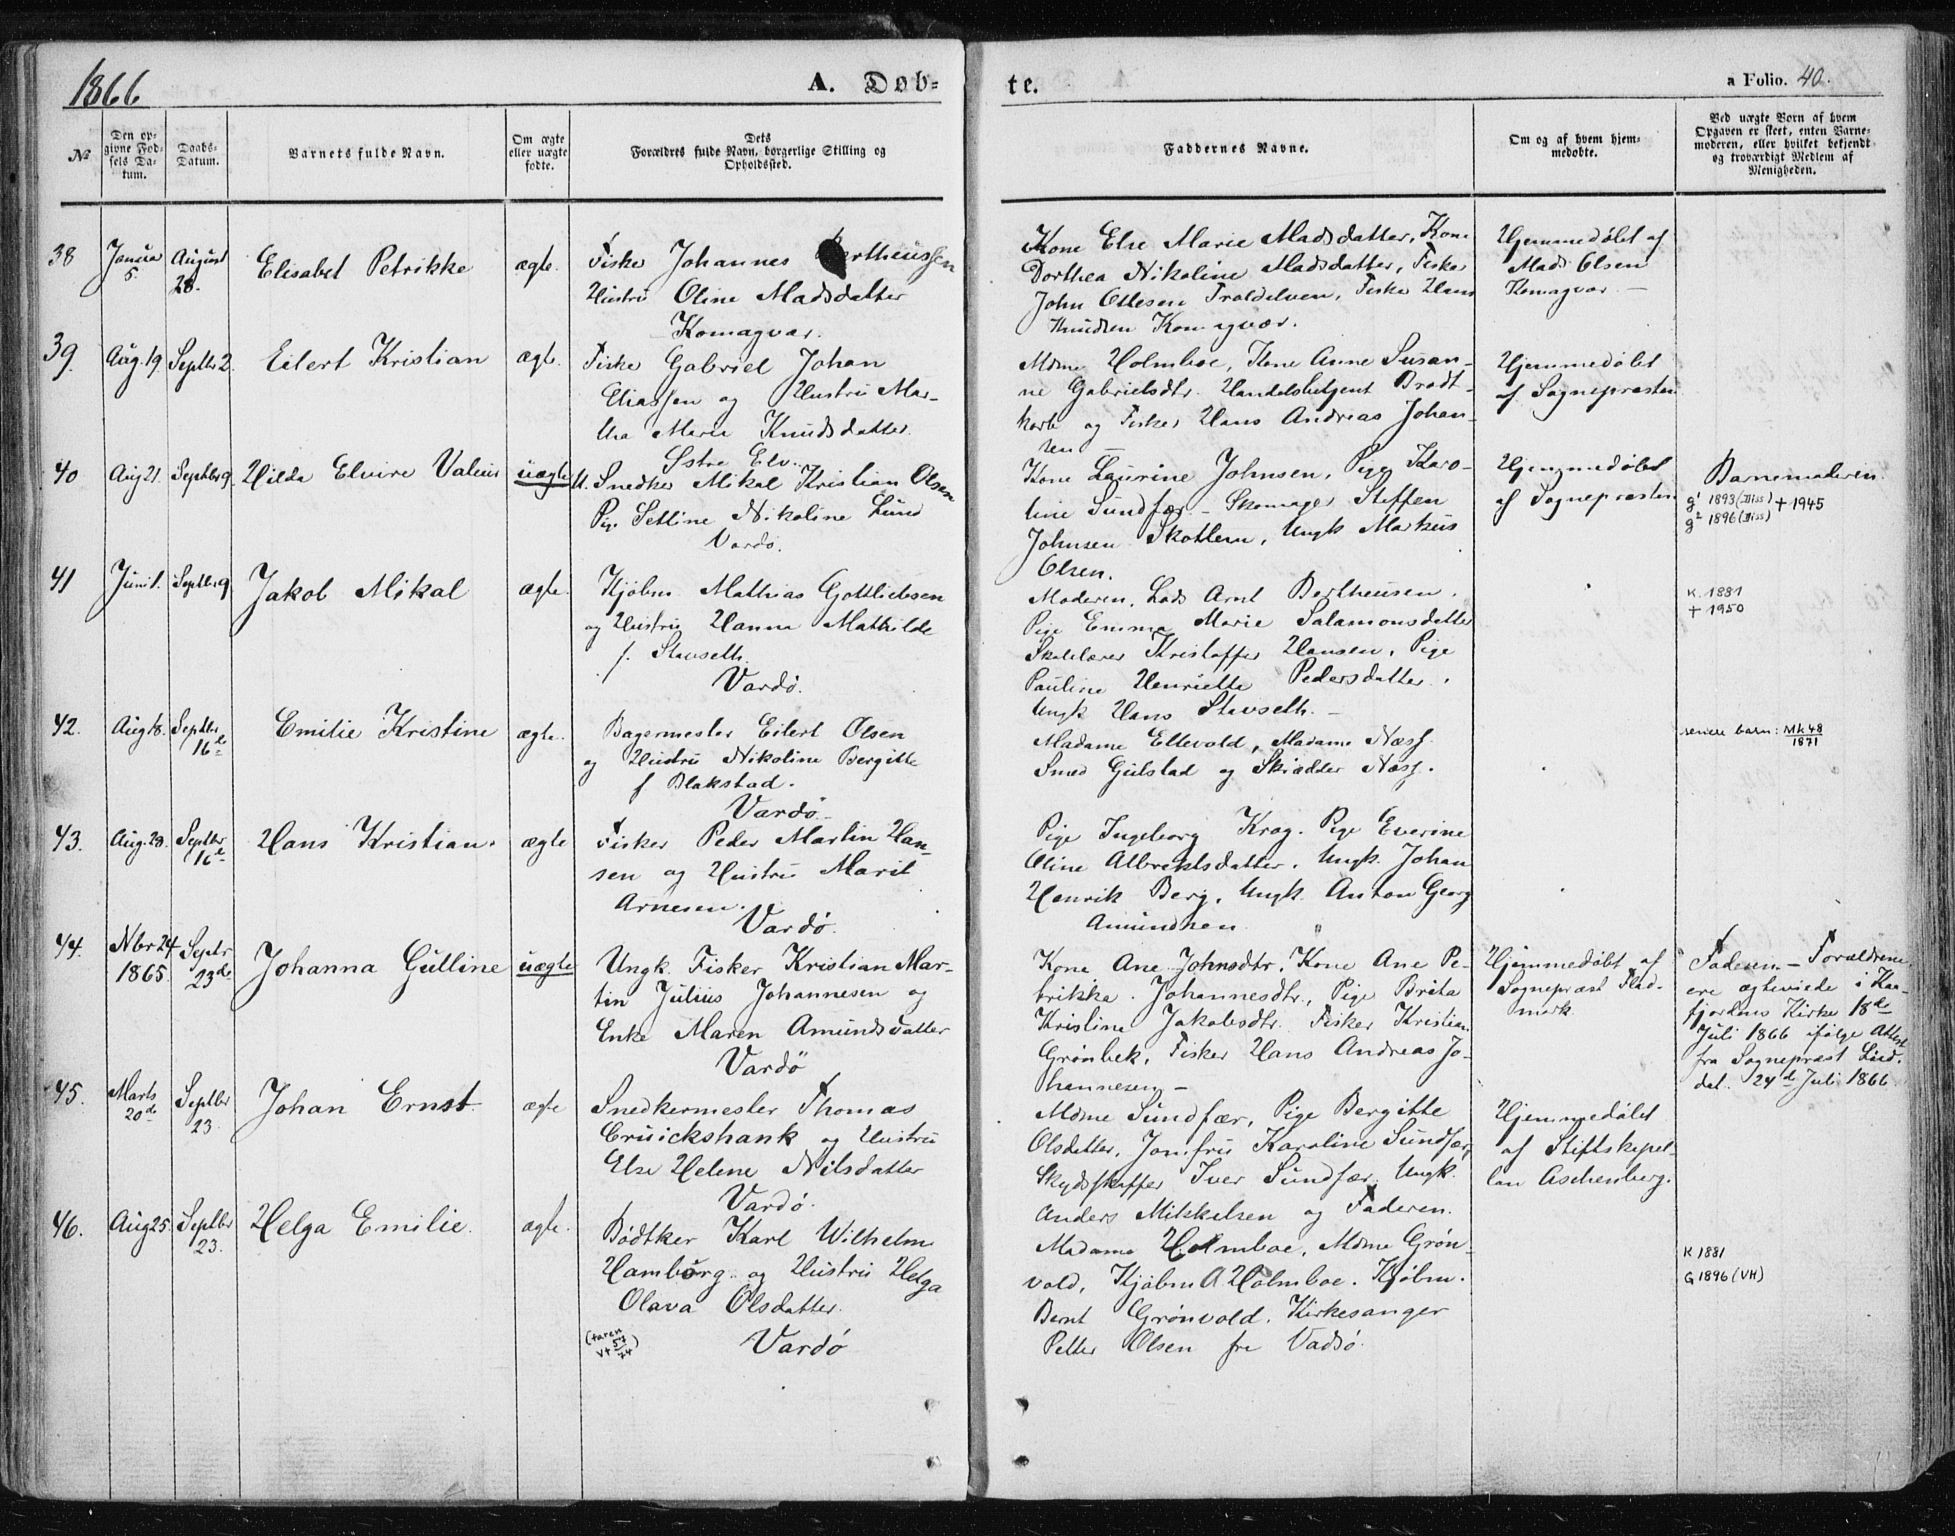 1866
A. Døb-
te.
a Folio. 40.
№
Den op-
givne Fød-
sels Da-
tum.
Daabs-
Datum.
Barnets fulde Navn.
Om ægte
eller uægte
fødte.
Dets
Forældres fulde Navn, borgerlige Stilling og
Opholdssted.
Faddernes Navne.
Om og af hvem hjem-
medøbte.
Ved uægte Børn af hvem
Opgaven er skeet, enten Barne-
moderen, eller hvilket bekjendt
og troværdigt Medlem af
Menigheden.
38
Januar
5.
August
28.
Elisabet Petrikke
ægte.
Fisker Johannes Bertheussen
Hustru Oline Madsdatter
Komagvær.
Kone Else Marie Madsdatter, Kone
Dorthea Nikoline Madsdatter, Fisker
John Ottesen Troldelven, Fisker Hans
Knudsen Komagvær.
Hjemmedøbt af
Mads Olsen
Komagvær. —
39.
Aug. 19.
Septbr 2.
Eilert Kristian
ægte.
Fisker Gabriel Johan
Eliassen og Hustru Mar-
tha Marie Knudsdatter
Østre Elv.
Mdme Holmboe, Kone Anne Susan-
ne Gabrielsdtr. Handelsbetjent Brodt-
korb og Fisker Hans Andreas Johan-
sen —
Hjemmedøbt
af Sognepræsten
40
Aug 21.
Septbr 9.
Hilda Elvire Valeus
uægte
U. Snedker Mikal Kristian Olsen
Pig. Setline Nikoline Lund
Vardø.
Kone Laurine Johnsen, Pige Karo-
line Sundfær – Skomager Steffen
Johnsen Skotlern, Ungk Markus
Olsen.
Hjemmedøbt
af Sognepræsten
Barnemoderen.
g¹ 1893 (Diss)
g² 1896 (Diss) + 1945
41
Juni 1.
Septbr 9
Jakob Mikal
ægte.
Kjøbm Mathias Gottliebsen
og Hustru Hanna Mathilde
f. Stavseth
Vardø.
Moderen, Lods Arnt Bertheusen,
Pige Emma Marie Salamonsdatter
Skolelærer Kristoffer Hansen, Pige
Pauline Henriette Pedersdatter,
Ungk Hans Stavseth. —
K. 1881
+ 1950
42.
Aug 18.
Septbr
16de
Emilie Kristine
ægte.
Bagermester Eilert Olsen
og Hustru Nikoline Bergitte
f Blakstad.
Vardø
Madame Ellevold, Madame Næss.
Smed Gulstad og Skrædder Næss.
senere barn: Mk 48
1871
43.
Aug. 28.
Septbr
16de
Hans Kristian.
ægte
Fisker Peder Martin Han-
sen og Hustru Marit
Arnesen.
Vardø.
Pige Ingeborg Krog. Pige Everine
Oline Albrektsdatter. Ungk. Johan
Henrik Berg, Ungk. Anton Georg
Amundsen
44.
Nbr 24
1865.
Septr
23de
Johanna Gulline
uægte
Ungk. Fisker Kristian Mar-
tin Julius Johannesen og
Enke Maren Amundsdatter
Vardø
Kone Ane Johnsdtr. Kone Ane Pe-
trikka Johannesdtr., Pige Brita
Kristine Jakobsdtr. Fisker Kristian
Grønbek, Fisker Hans Andreas Jo-
hannesen —
Hjemmedøbt af
Sognepræst Flad-
mark
Faderen – Forældrene
ere ægteviede i Kaa-
fjordens Kirke 18de
Juli 1866 ifølge Attest
fra Sognepræst Lind-
dal. 24de Juli 1866
45.
Marts
20de
Septbr
23.
Johan Ernst
ægte
Snedkermester Thomas
Cruickshank og Hustru
Else Helene Nilsdatter
Vardø.
Mdme Sundfær, Pige Bergitte
Olsdatter, Jomfru Karoline Sundfær,
Skydsskaffer Iver Sundfær. Ungk.
Anders Mikkelsen og Faderen.
Hjemmedøbt
af Stiftskapel-
lan Aschenberg.
46.
Aug 25.
Septbr
23.
Helga Emilie.
ægte.
Bødtker Karl Wilhelm
Hamburg og Hustru Helga
Olava Olsdatter.
(faren
Vt 57/74)
Vardø
Madame Holmboe, Mdme Grøn-
vold, Kjøbm A Holmboe. Kjøbm.
Bernt Grønvold. Kirkesanger
Petter Olsen fra Vadsø.
K 1881
G 1896 (VH)